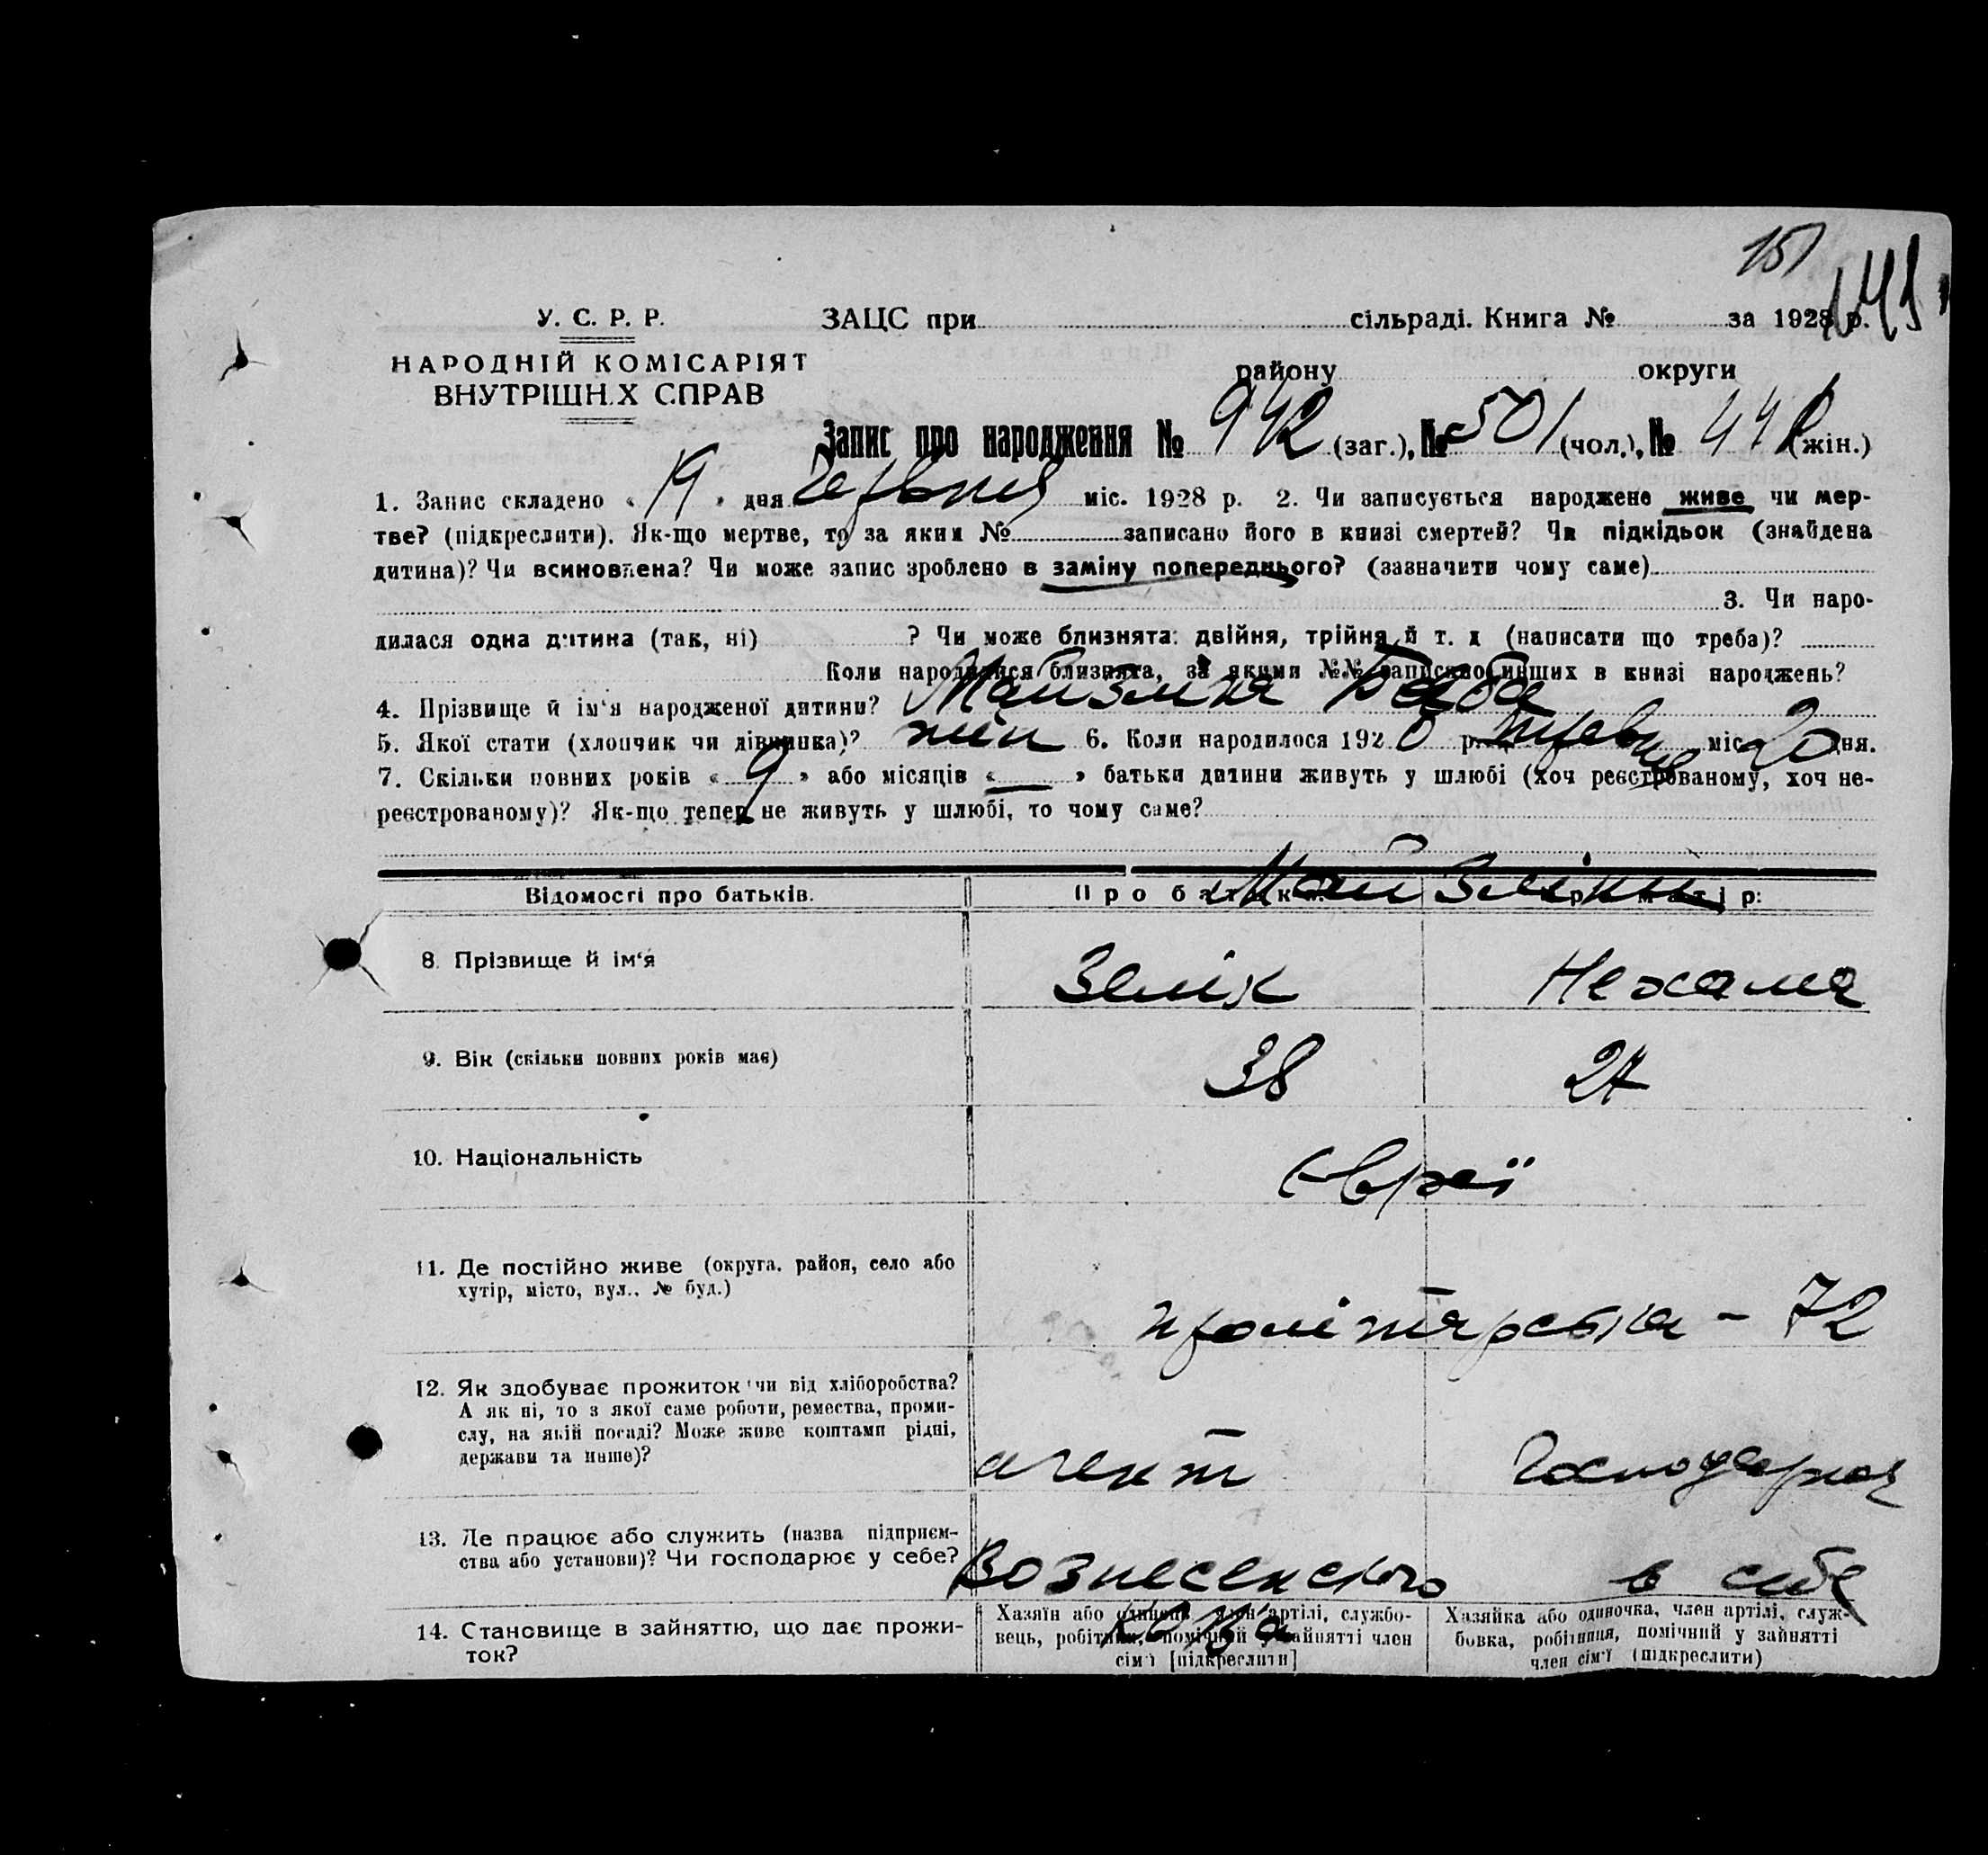 151
141
У. С. Р. Р.
НАРОДНІЙ КОМІСАРІЯТ
ВНУТРІШН.Х СПРАВ
ЗАЦС при сільраді. Книга № за 1928 р.
району округи
Запис про народження № 942 (заг.), № 501 (чол.), № 441 (жін.)
1. Запис складено « 19 » дня Червня міс. 1928 р. 2. Чи записується народжене живе чи мер-
тве? (підкреслити). Як-що мертве, то за яким № записано його в книзі смертей? Чи підкідьок (знайдена
дитина)? Чи всиновлена? Чи може запис зроблено в заміну попереднього? (зазначити чому саме)
3. Чи наро-
дилася одна дитина (так, ні) ? Чи може близнята: двійня, трійня й т. д (написати що треба)?
Коли народилися близнята, за якими №№ записано инших в книзі народжень?
4. Прізвище й ім'я народженої дитини? Майзлина
5. Якої статі (хлопчик чи дівчинка)? жін 6. Коли народилося 1920 р. міс 20 дня.
7. Скільки повних років « 9 » або місяців « — » батьки дитини живуть у шлюбі (хоч реєстрованому, хоч не-
реєстрованому)? Як-що тепер не живуть у шлюбі, то чому саме?
Відомості про батьків. Про батька: Про матір:
Майзліни
8. Прізвище й ім'я Зелік Нехама
9. Вік (скільки повних років має) 38 27
10. Національність Євреї
11. Де постійно живе (округа, район, село або
хутір, місто, вул., № буд.)
пролітарська - 72
12. Як здобуває прожиток чи від хліборобства?
А як ні, то з якої саме роботи, ремества, проми-
слу, на якій посаді? Може живе коштами рідні,
держави та инше)?
агент Господарка
13. Де працює або служить (назва підприєм-
ства або установи)? Чи господарює у себе?
Вознесенского в себе
14. Становище в зайняттю, що дає прожи-
ток?
Хазяїн або одинець, член артілі, службо-
вець, робітник, помічний у зайнятті член
сім'ї [підкреслити]
Хазяйка або одиночка, член артілі, служ-
бовка, робітниця, помічний у зайнятті
член сім'ї (підкреслити)